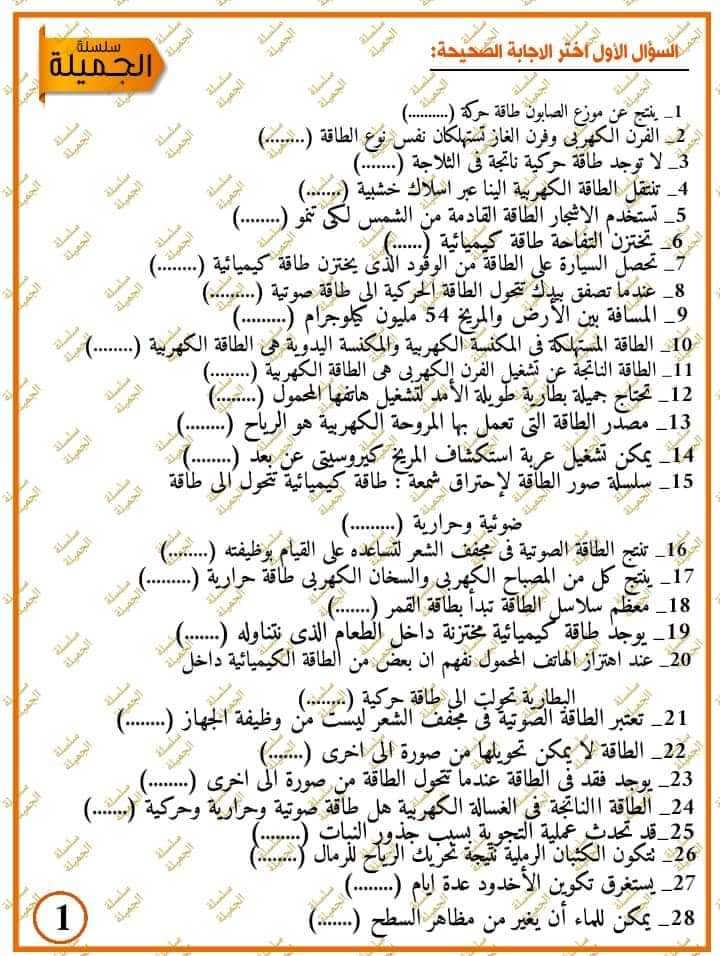 سلسلة
الجميلة
السؤال الأول اختر الاجابة الصحيحة:
1_ ينتج عن موزع الصابون طاقة حركة (..........)
2_ الفرن الكهربى وفرن الغاز تستهلكان نفس نوع الطاقة (........)
3_ لا توجد طاقة حركية ناتجة فى الثلاجة (.......)
4_ تنتقل الطاقة الكهربية الينا عبر اسلاك خشبية (.......)
5_ تستخدم الاشجار الطاقة القادمة من الشمس لكى تنمو (........)
6_ تختزن التفاحة طاقة كيميائية (......)
7_ تحصل السيارة على الطاقة من الوقود الذى يختزن طاقة كيميائية (........)
8_ عندما تصفق بيدك تتحول الطاقة الحركية الى طاقة صوتية (.........)
9_ المسافة بين الأرض والمريخ 54 مليون كيلوجرام (.........)
10_ الطاقة المستهلكة فى المكنسة الكهربية والمكنسة اليدوية هى الطاقة الكهربية (........)
11_ الطاقة الناتجة عن تشغيل الفرن الكهربى هى الطاقة الكهربية (........)
12_ تحتاج جميلة بطارية طويلة الأمد لتشغيل هاتفها المحمول (........)
13_ مصدر الطاقة التى تعمل بها المروحة الكهربية هو الرياح (........)
14_ يمكن تشغيل عربة استكشاف المريخ كيروسيتى عن بعد (........)
15_ سلسلة صور الطاقة لإحتراق شمعة : طاقة كيميائية تتحول الى طاقة
ضوئية وحرارية (.........)
16_ تنتج الطاقة الصوتية فى مجفف الشعر لتساعده على القيام بوظيفته (........)
17_ ينتج كل من المصباح الكهربى والسخان الكهربى طاقة حرارية (.........)
18_ معظم سلاسل الطاقة تبدأ بطاقة القمر (.......)
19_ يوجد طاقة كيميائية مختزنة داخل الطعام الذى نتناوله (.......)
20_ عند اهتزاز الهاتف المحمول نفهم ان بعض من الطاقة الكيميائية داخل
البطارية تحولت الى طاقة حركية (........)
21_ تعتبر الطاقة الصوتية فى مجفف الشعر ليست من وظيفة الجهاز (........)
22_ الطاقة لا يمكن تحويلها من صورة الى اخرى (.......)
23_ يوجد فقد فى الطاقة عندما تتحول الطاقة من صورة الى اخرى (........)
24_ الطاقة االناتجة فى الغسالة الكهربية هل طاقة صوتية وحرارية وحركية (.......)
25_قد تحدث عملية التجوية بسبب جذور النبات (........)
26_ تتكون الكثبان الرملية نتيجة تحريك الرياح للرمال (........)
27_ يستغرق تكوين الأخدود عدة ايام (........)
28_ يمكن للماء أن يغير من مظاهر السطح (.......)
1